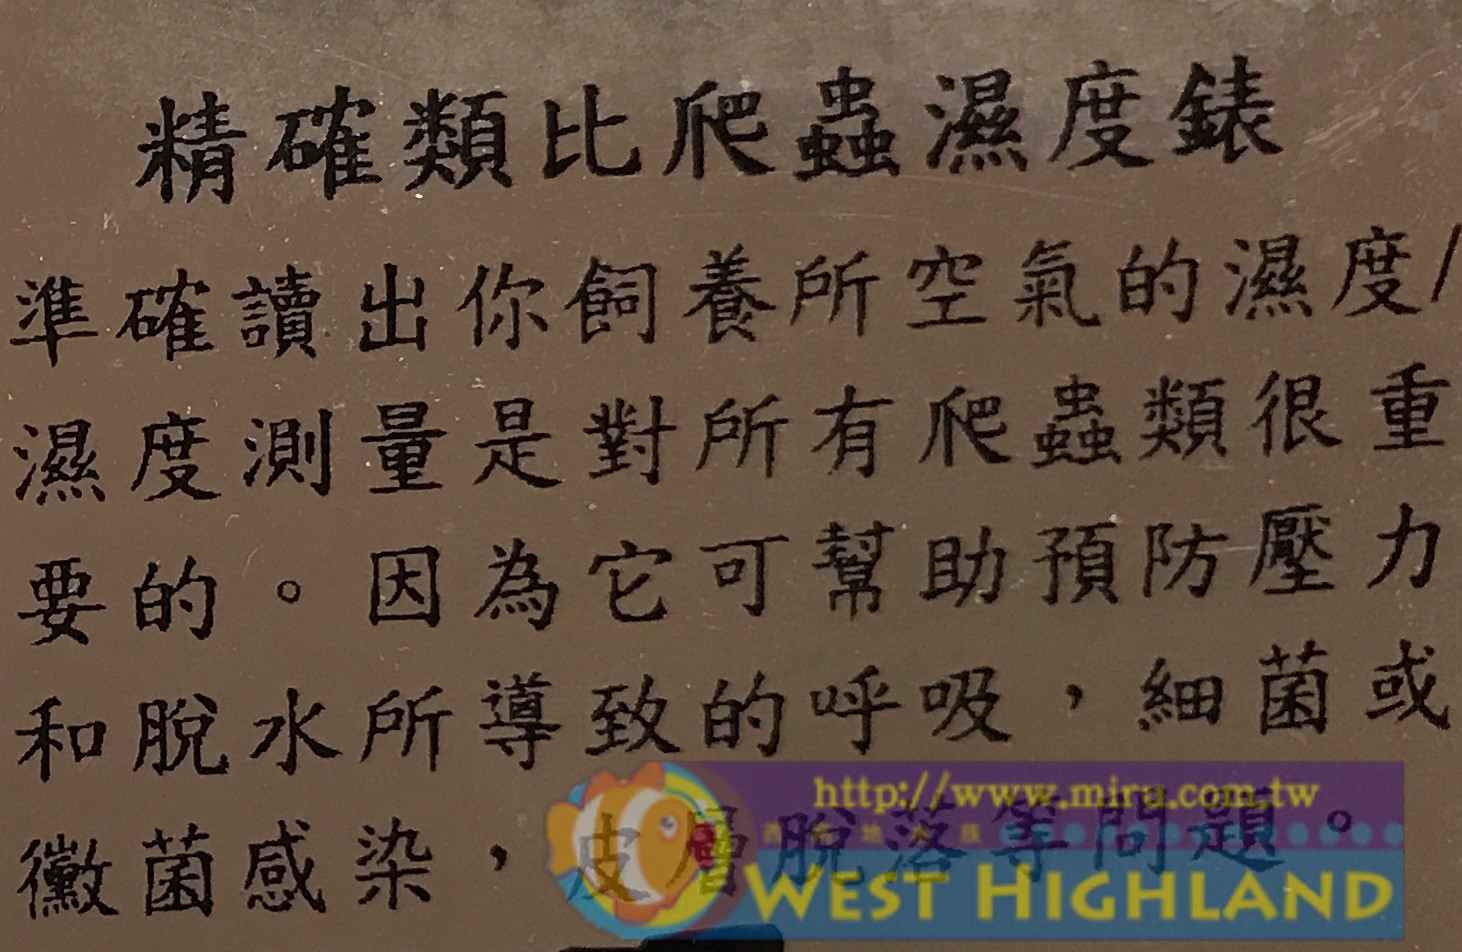 精確類比爬蟲濕度錶
準確讀出你飼養所空氣的濕度/
濕度測量是對所有爬蟲類很重
要的。因為它可幫助預防壓力
和脫水所導致的呼吸,細菌或
黴菌感染,皮層脫落等問題。
http://www.miru.com.tw
WEST HIGHLAND